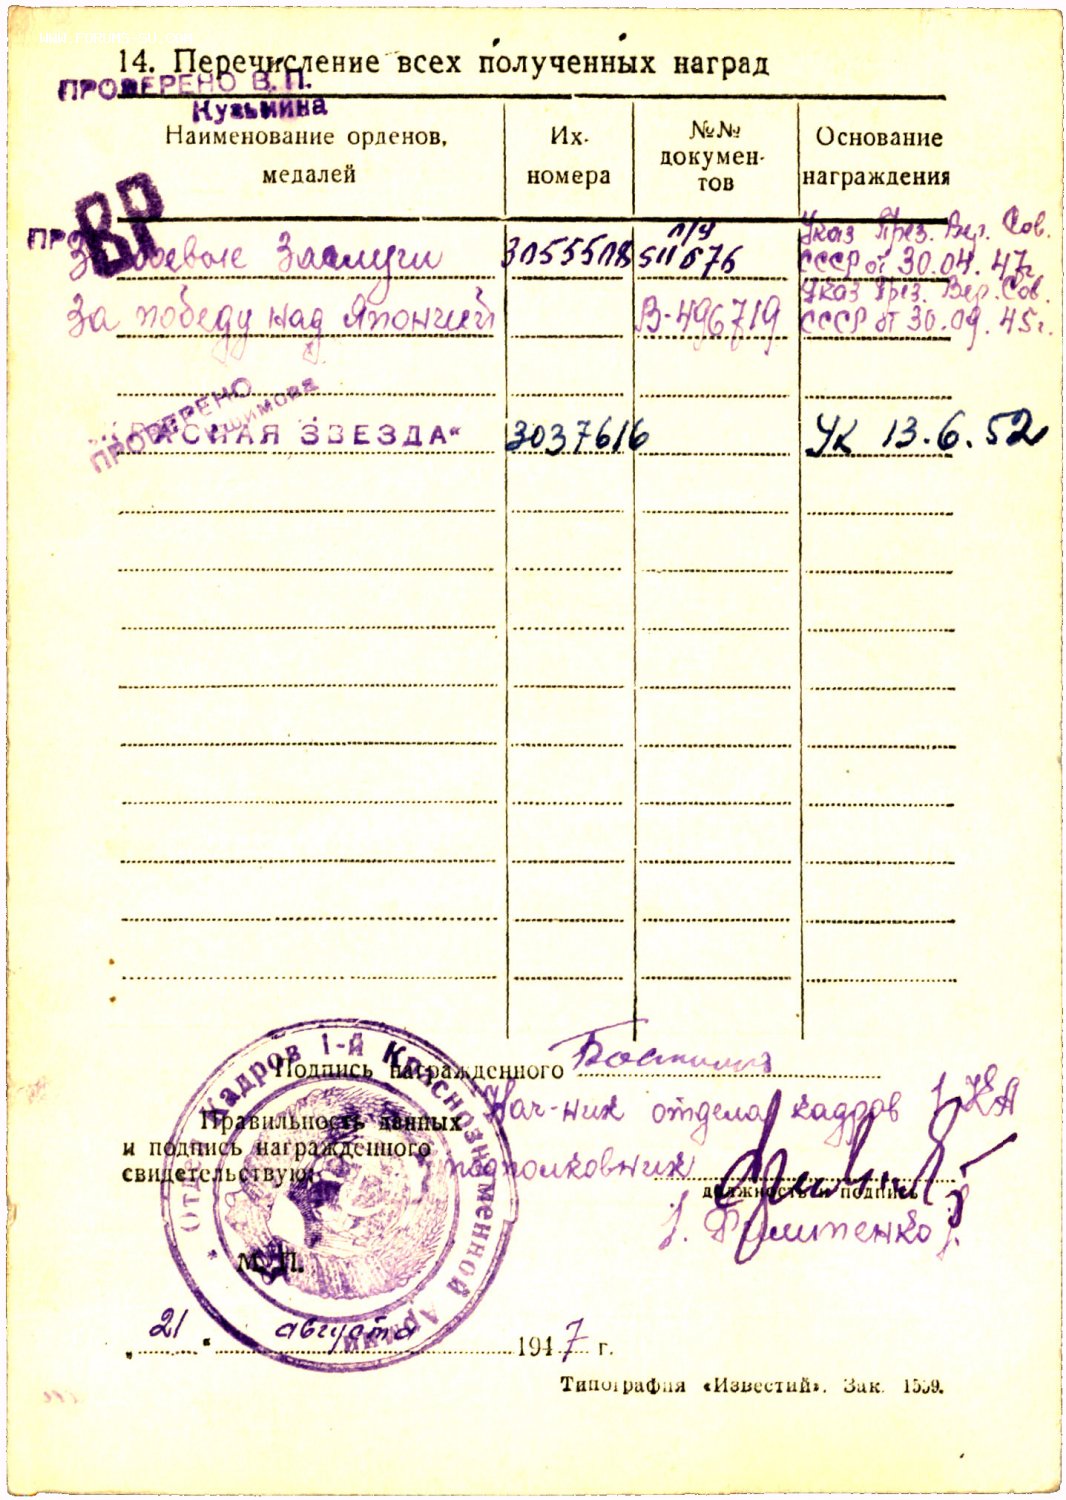 14. Перечисление всех полученных наград
ПРОВЕРЕНО В. П.
Кузьмина
Наименование орденов, медалей
Их номера
№№ докумен-тов
Основание награждения
ВР
За боевые заслуги 3055508 п/у 511676 Указ През. Вер. Сов. СССР от 30.04.47г
За победу над Японией В-496719 Указ През. Вер. Сов. СССР от 30.09.45г.
ПРОВЕРЕНО
„КРАСНАЯ ЗВЕЗДА“ 3037616 УК 13.6.52
Подпись награжденного
Отдел Кадров 1-й Краснознаменной Армии
Нач-ник отдела кадров 1 КА
Правильность данных
и подпись награжденного
свидетельствую:
подполковник
должность и подпись
/. Филипенко /.
М. П.
„ 21 “ августа 1947 г.
Типография «Известий». Зак. 1559.